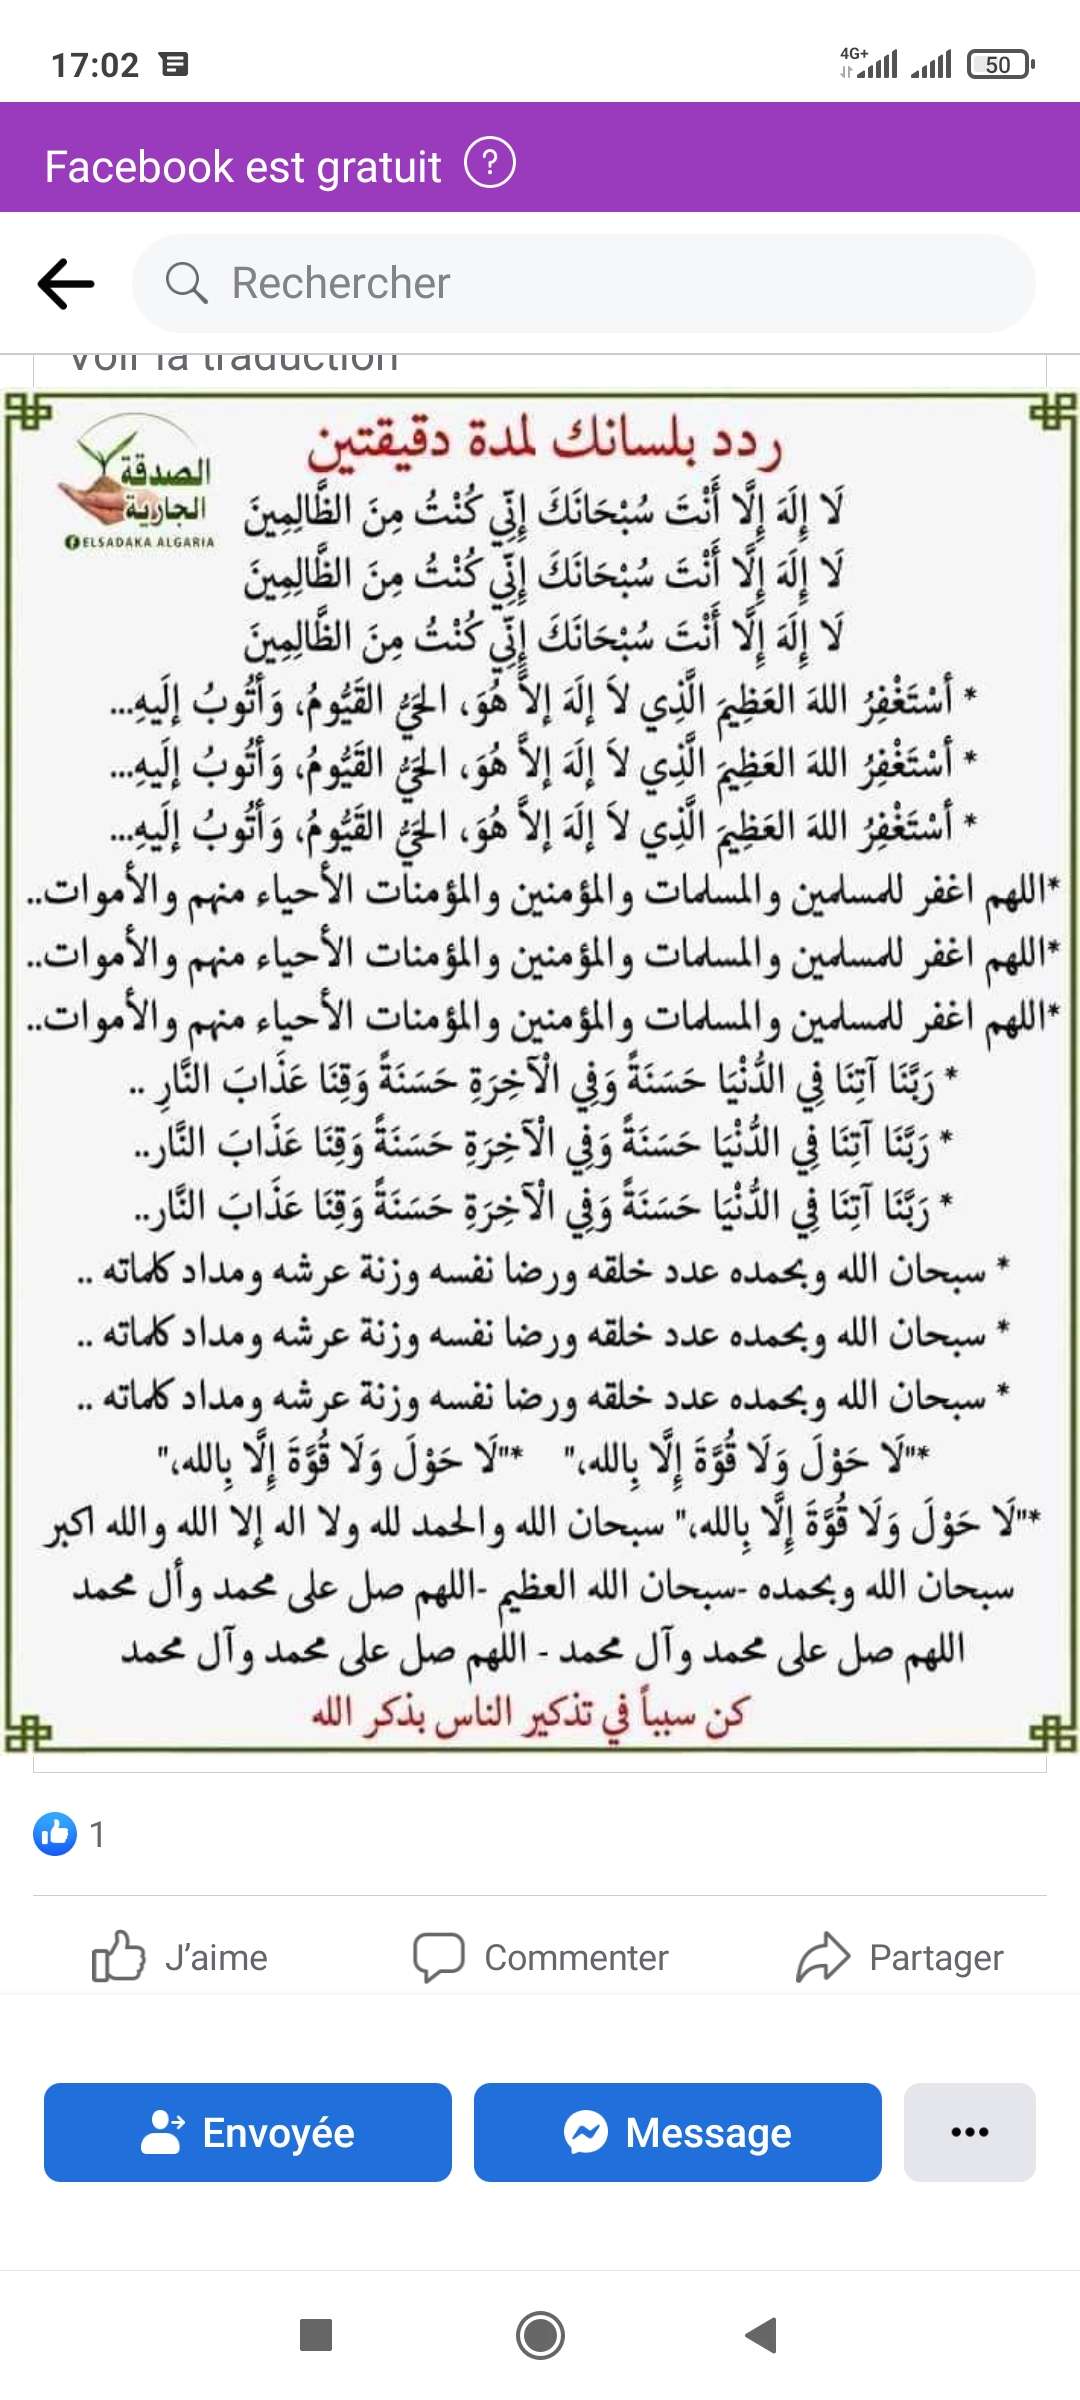 17:02
4G+
50
Facebook est gratuit ?
Rechercher
Voir la traduction
الصدقة
الجارية
ELSADAKA ALGARIA
ردد بلسانك لمدة دقيقتين
لَا إِلَهَ إِلَّا أَنْتَ سُبْحَانَكَ إِنِّي كُنْتُ مِنَ الظَّالِمِينَ
لَا إِلَهَ إِلَّا أَنْتَ سُبْحَانَكَ إِنِّي كُنْتُ مِنَ الظَّالِمِينَ
لَا إِلَهَ إِلَّا أَنْتَ سُبْحَانَكَ إِنِّي كُنْتُ مِنَ الظَّالِمِينَ
* أَسْتَغْفِرُ اللهَ العَظِيمَ الَّذِي لاَ إِلَهَ إلاَّ هُوَ، الحَيُّ القَيُّومُ، وَأَتُوبُ إلَيهِ...
* أَسْتَغْفِرُ اللهَ العَظِيمَ الَّذِي لاَ إِلَهَ إلاَّ هُوَ، الحَيُّ القَيُّومُ، وَأَتُوبُ إلَيهِ...
* أَسْتَغْفِرُ اللهَ العَظِيمَ الَّذِي لاَ إِلَهَ إلاَّ هُوَ، الحَيُّ القَيُّومُ، وَأَتُوبُ إلَيهِ...
*اللهم اغفر للمسلمين والمسلمات والمؤمنين والمؤمنات الأحياء منهم والأموات..
*اللهم اغفر للمسلمين والمسلمات والمؤمنين والمؤمنات الأحياء منهم والأموات..
*اللهم اغفر للمسلمين والمسلمات والمؤمنين والمؤمنات الأحياء منهم والأموات..
* رَبَّنَا آتِنَا فِي الدُّنْيَا حَسَنَةً وَفِي الْآخِرَةِ حَسَنَةً وَقِنَا عَذَابَ النَّارِ ..
* رَبَّنَا آتِنَا فِي الدُّنْيَا حَسَنَةً وَفِي الْآخِرَةِ حَسَنَةً وَقِنَا عَذَابَ النَّار..
* رَبَّنَا آتِنَا فِي الدُّنْيَا حَسَنَةً وَفِي الْآخِرَةِ حَسَنَةً وَقِنَا عَذَابَ النَّار..
* سبحان الله وبحمده عدد خلقه ورضا نفسه وزنة عرشه ومداد كلماته ..
* سبحان الله وبحمده عدد خلقه ورضا نفسه وزنة عرشه ومداد كلماته ..
* سبحان الله وبحمده عدد خلقه ورضا نفسه وزنة عرشه ومداد كلماته ..
*"لَا حَوْلَ وَلَا قُوَّةَ إِلَّا بِالله،" *"لَا حَوْلَ وَلَا قُوَّةَ إِلَّا بِالله،"
*"لَا حَوْلَ وَلَا قُوَّةَ إِلَّا بِالله،" سبحان الله والحمد لله ولا اله إلا الله والله اكبر
سبحان الله وبحمده -سبحان الله العظيم -اللهم صل على محمد وأل محمد
اللهم صل على محمد وآل محمد - اللهم صل على محمد وآل محمد
كن سبباً في تذكير الناس بذكر الله
1
J’aime
Commenter
Partager
Envoyée
Message